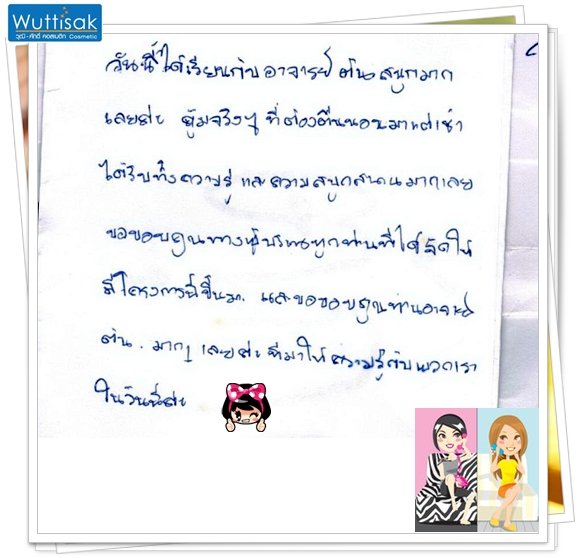 Wuttisak
วุฒิ-ศักดิ์ คอสเมติก Cosmetic
วันนี้ได้เรียนกับอาจารย์ต้น สนุกมาก
เลยค่ะ คุ้มจริงๆ ที่ต้องตื่นนอนมาแต่เช้า
ได้รับทั้งความรู้ และความสนุกสนานมากเลย
ขอขอบคุณทางผู้บริหารทุกท่านที่ได้จัดให้
มีโครงการนี้ขึ้นมา และขอขอบคุณท่านอาจารย์
ต้น. มากๆ เลยค่ะ ที่มาให้ความรู้กับพวกเรา
ในวันนี้ค่ะ